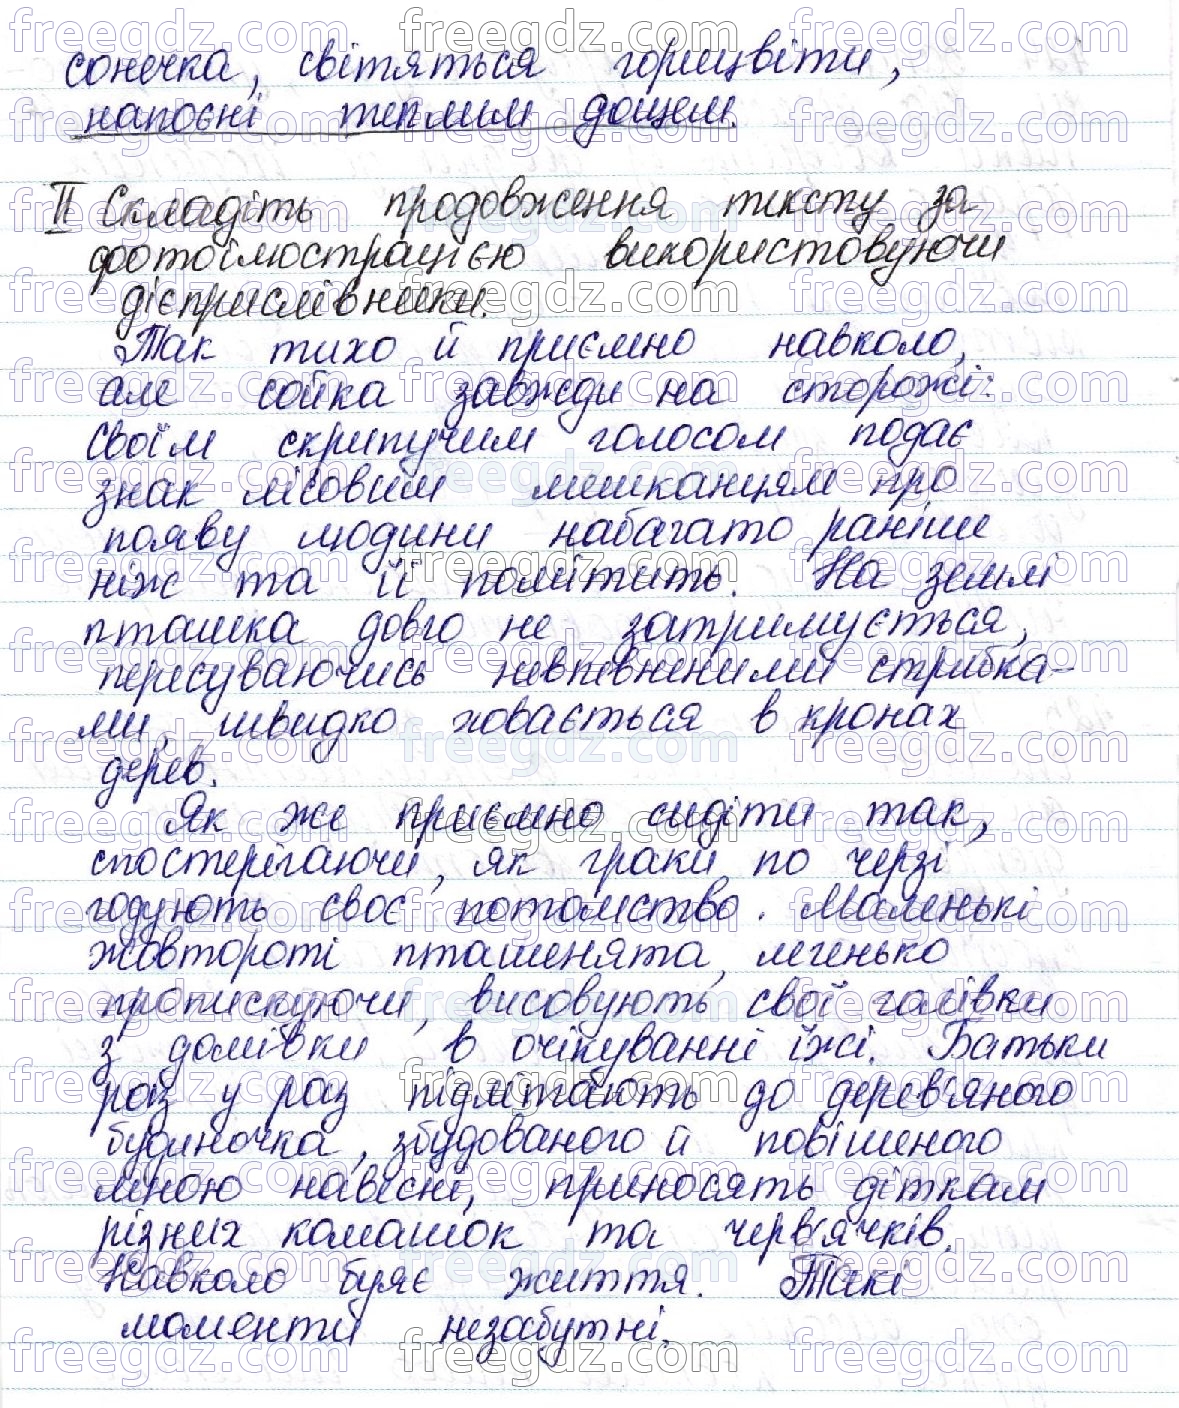 сонечка, світяться горицвіти,
напоєні теплим дощем.
ІІ Складіть продовження тексту за
фотоілюстрацією використовуючи
дієприслівники.
Так тихо й приємно навколо,
але сойка завжди на сторожі:
Своїм скрипучим голосом подає
знак лісовим мешканцям про
появу людини набагато раніше
ніж та її помітить. На землі
пташка довго не затримується,
пересуваючись невпевненими стрибка-
ми, швидко ховається в кронах
дерев.
Як же приємно сидіти так,
спостерігаючи, як граки по черзі
годують своє потомство. Маленькі
жовтороті пташенята, легенько
пропискуючи, висовують свої голівки
з домівки в очікуванні їжі. Батьки
раз у раз підлітають до дерев'яного
будиночка, збудованого й повішеного
мною навесні, приносять діткам
різних комашок та черв'ячків.
Навколо буяє життя. Такі
моменти незабутні.
freegdz.com